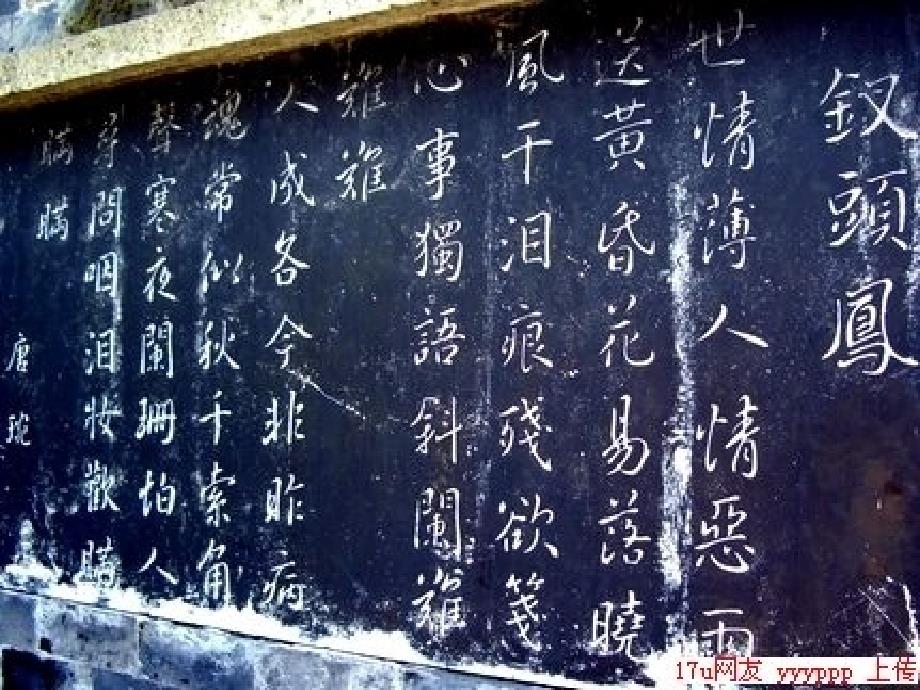 釵頭鳳
世情薄人情惡雨
送黃昏花易落曉
風干泪痕殘欲箋
心事獨語斜闌難
難難
人成各今非昨病
魂常似秋千索角
聲寒夜闌珊怕人
尋問咽泪妝歡瞞
瞞瞞
唐琬
17u网友 yyyppp 上传